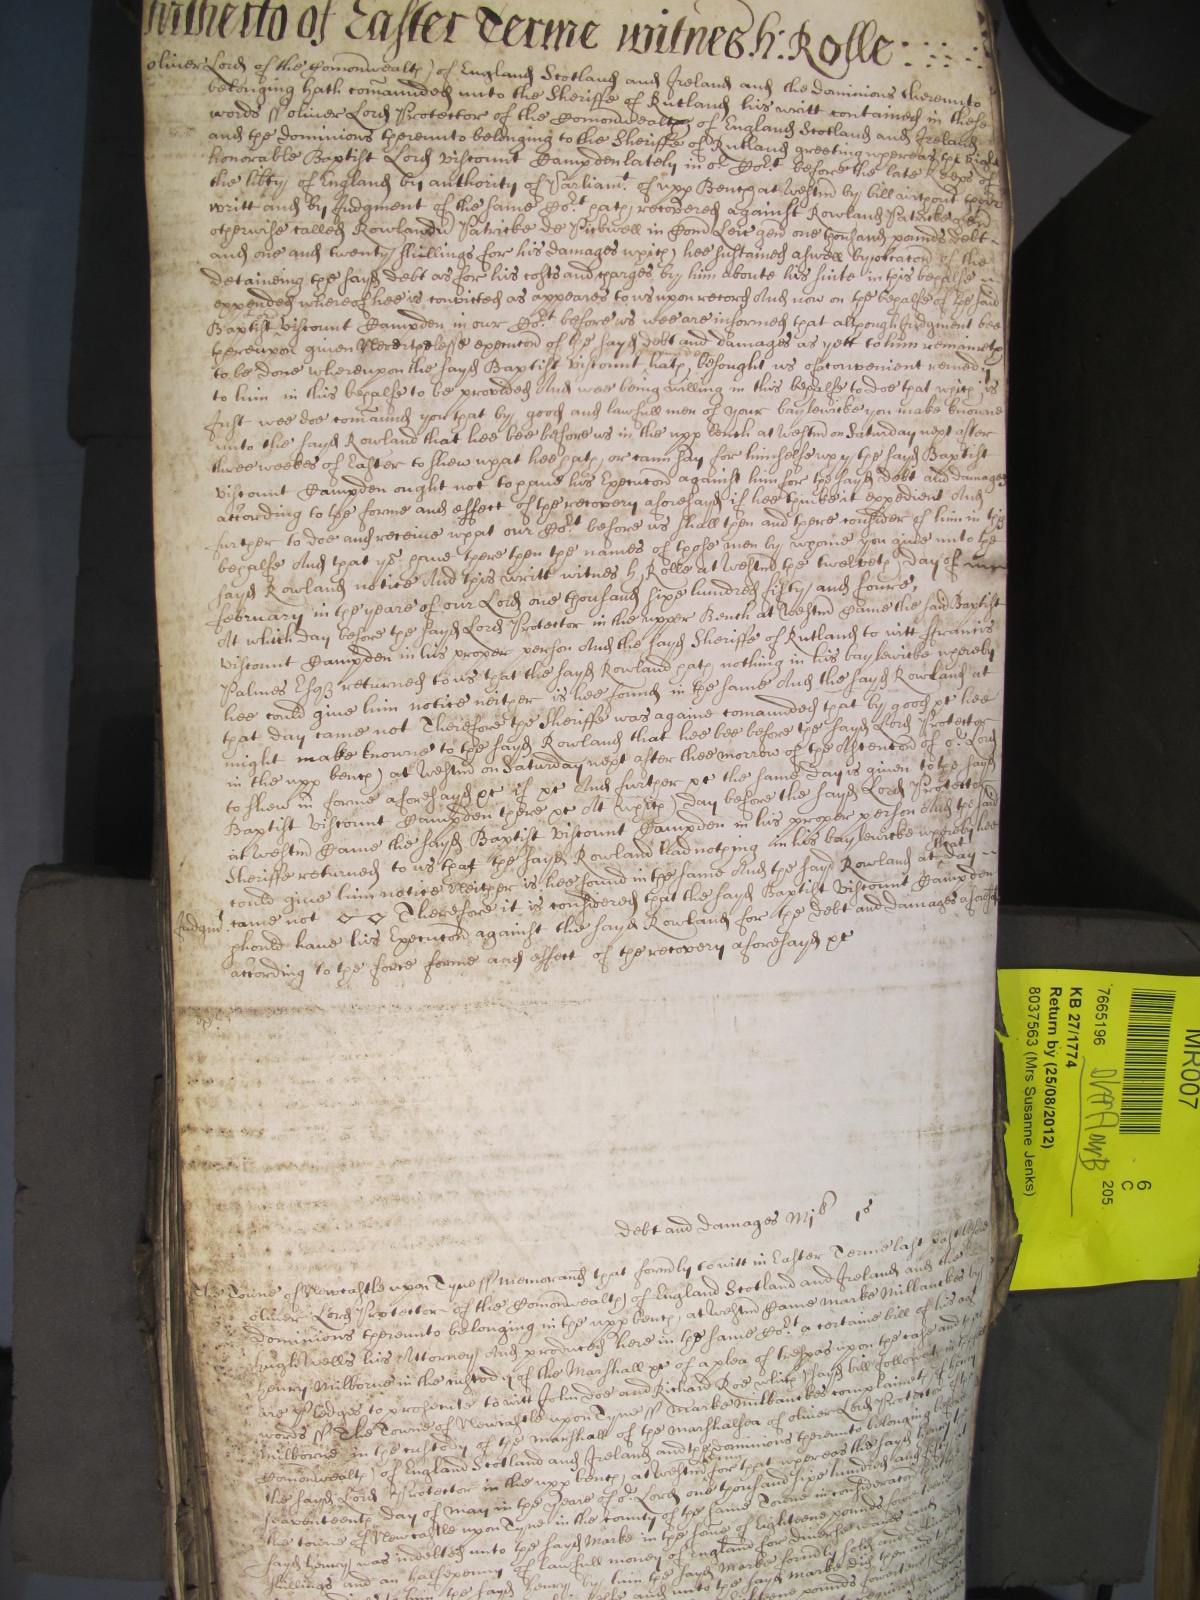 hitherto of Easter Terme witnes H: Rolle
Oliver Lord of the Comonwealth of England Scotland and Ireland and the dominions thereunto
belonging hath comaunded unto the Sheriffe of Rutland his writt contained in these
words ss Oliver Lord Protector of the Comonwealth of England Scotland and Ireland
and the dominions thereunto belonging to the Sheriffe of Rutland greeting whereas the right
honorable Baptist Lord Viscount Campden lately in or Cort before the late Keeps of
the libty of England by authority of Parliamt of upp Bench at Westm by bill without their
writt and by Judgment of the same Cort hath recovered against Rowland Patricke gen
otherwise called Rowland Patricke de Pickwell in Com Leic gen one thousand pounds debt
and one and twenty shillings for his damages which hee sustained aswell by occacon of the
detaineing the sayd debt as for his costs and charges by him aboute his suite in this behalfe
expended whereof hee is convicted as appeares to us upon record And now on the behalfe of the said
Baptist Viscount Campden in our Cort before us wee are informed that although Judgment bee
thereupon given Neverthelesse execucon of the sayd debt and damages as yett to him remaineth
to be done whereupon the sayd Baptist Viscount Campden hath besought us of convenient remedy
to him in this behalfe to be provided And wee being willing in this behalfe to doe that which is
Just wee doe comaund you that by good and lawfull men of your baylewicke you make knowne
unto the sayd Rowland that hee bee before us in the upp bench at Westm on Saturday next after
three weekes of Easter to shew what hee hath or cann say for himselfe why the sayd Baptist
Viscount Campden ought not to have his Execucon against him for the sayd debt and damages
according to the forme and effect of the recovery aforesayd if hee thinke it expedient And
further to doe and receive what our Cort before us shall then and there consider of him in this
behalfe And that ye have there then the names of those men by whome you give unto the
sayd Rowland notice And this writt witnes H Rolle at Westm the twelveth day of
February in the yeare of our Lord one thousand sixe hundred fifty and foure,
At which day before the sayd Lord Protector in the upper Bench at Westm Came the said Baptist
Viscount Campden in his proper person And the sayd Sheriffe of Rutland to witt Francis
Palmes Esqr returned to us that the sayd Rowland hath nothing in his baylewicke whereby
hee could give him notice neither is hee found in the same And the sayd Rowland at
that day came not Therefore the Sheriffe was againe comaunded that by good &c hee
might make knowne to the sayd Rowland that hee bee before the sayd Lord Protector
in the upp bench at Westm on Saturday next after the morrow of the Ascencon of or Lord
to shew in forme aforesayd &c if &c And further &c the same day is given to the sayd
Baptist Viscount Campden there &c At which day before the sayd Lord Protector
at Westm Came the sayd Baptist Viscount Campden in his proper person And the said
Sheriffe returned to us that the sayd Rowland had nothing in his baylewicke whereby hee
could give him notice Neither is hee found in the same And the sayd Rowland at that day
Judgmt came not Therefore it is considered that the sayd Baptist Viscount Campden
should have his Execucon against the sayd Rowland for the debt and damages aforesd
according to the force forme and effect of the recovery aforesayd &c
debt and damages Mjli js
The Towne of Newcastle upon Tyne ss Memorand that formly to witt in Easter Terme last past before
Oliver Lord Protector of the Comonwealth of England Scotland and Ireland and the
dominions thereunto belonging in the upp bench at Westm Came Marke Milbanckes by
Hugh Wells his Attorney And produced here in the same Cort a certaine bill of his agt
Henry Milborne in the custody of the Marshall &c of a plea of trespas upon the case and there
are pledges to prosecute to witt John Doe and Richard Roe which sayd bill followeth in these
words ss The Towne of Newcastle upon Tyne ss Marke Milbanckes complaineth of Henry
Milborne in the custody of the Marshall of the Marshalsea of Oliver Lord Protector of the
Comonwealth of England Scotland and Ireland and the dominions thereunto belonging before
the sayd Lord Protector in the upp bench at Westm for that whereas the sayd Henry
seaventeenth day of May in the yeare of or Lord one thousand sixe hundred and fifty
the towne of Newcastle upon Tyne in the county of the same Towne in consideracon
sayd Henry was indebted unto the sayd Marke in the some of Eighteene pounds
shillings and an halfepenny of lawfull money of England for diverse wares and
to him the sayd Henry by him the sayd Marke formly sold and
MR007
6
C
7665196
205.
KB 27/1774
Return by (25/08/2012)
8037563 (Mrs Susanne Jenks)